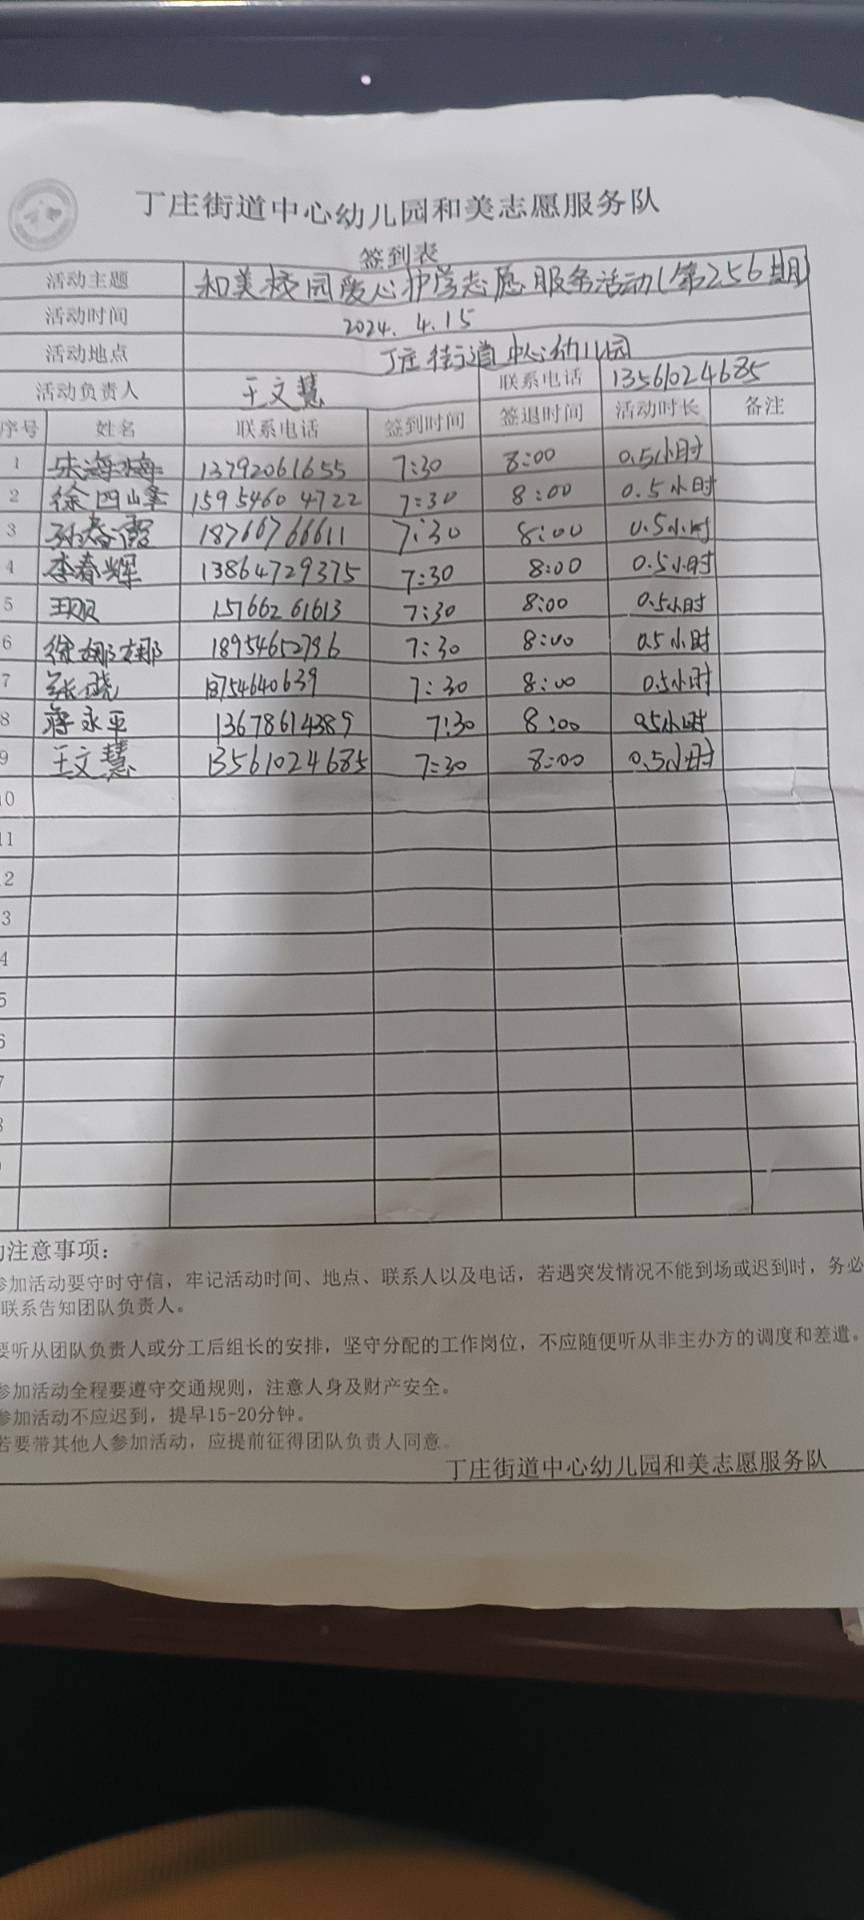 丁庄街道中心幼儿园和美志愿服务队
签到表
活动主题 和美校园爱心护学志愿服务活动(第256期)
活动时间 2024.4.15
活动地点 丁庄街道中心幼儿园
活动负责人 王文慧 联系电话 13561024685
序号 姓名 联系电话 签到时间 签退时间 活动时长 备注
1 朱海梅 13792061655 7:30 8:00 0.5小时
2 徐四峰 15954604722 7:30 8:00 0.5小时
3 孙春霞 18766766611 7:30 8:00 0.5小时
4 李春辉 13864729375 7:30 8:00 0.5小时
5 15766261613 7:30 8:00 0.5小时
6 徐娜娜 18954652796 7:30 8:00 0.5小时
7 张晓 18754640639 7:30 8:00 0.5小时
8 蒋永平 13678614389 7:30 8:00 0.5小时
9 王文慧 13561024685 7:30 8:00 0.5小时
0
11
2
3
4
5
6
7
8
注意事项:
参加活动要守时守信，牢记活动时间、地点、联系人以及电话，若遇突发情况不能到场或迟到时，务必
联系告知团队负责人。
要听从团队负责人或分工后组长的安排，坚守分配的工作岗位，不应随便听从非主办方的调度和差遣。
参加活动全程要遵守交通规则，注意人身及财产安全。
参加活动不应迟到，提早15-20分钟。
若要带其他人参加活动，应提前征得团队负责人同意。
丁庄街道中心幼儿园和美志愿服务队